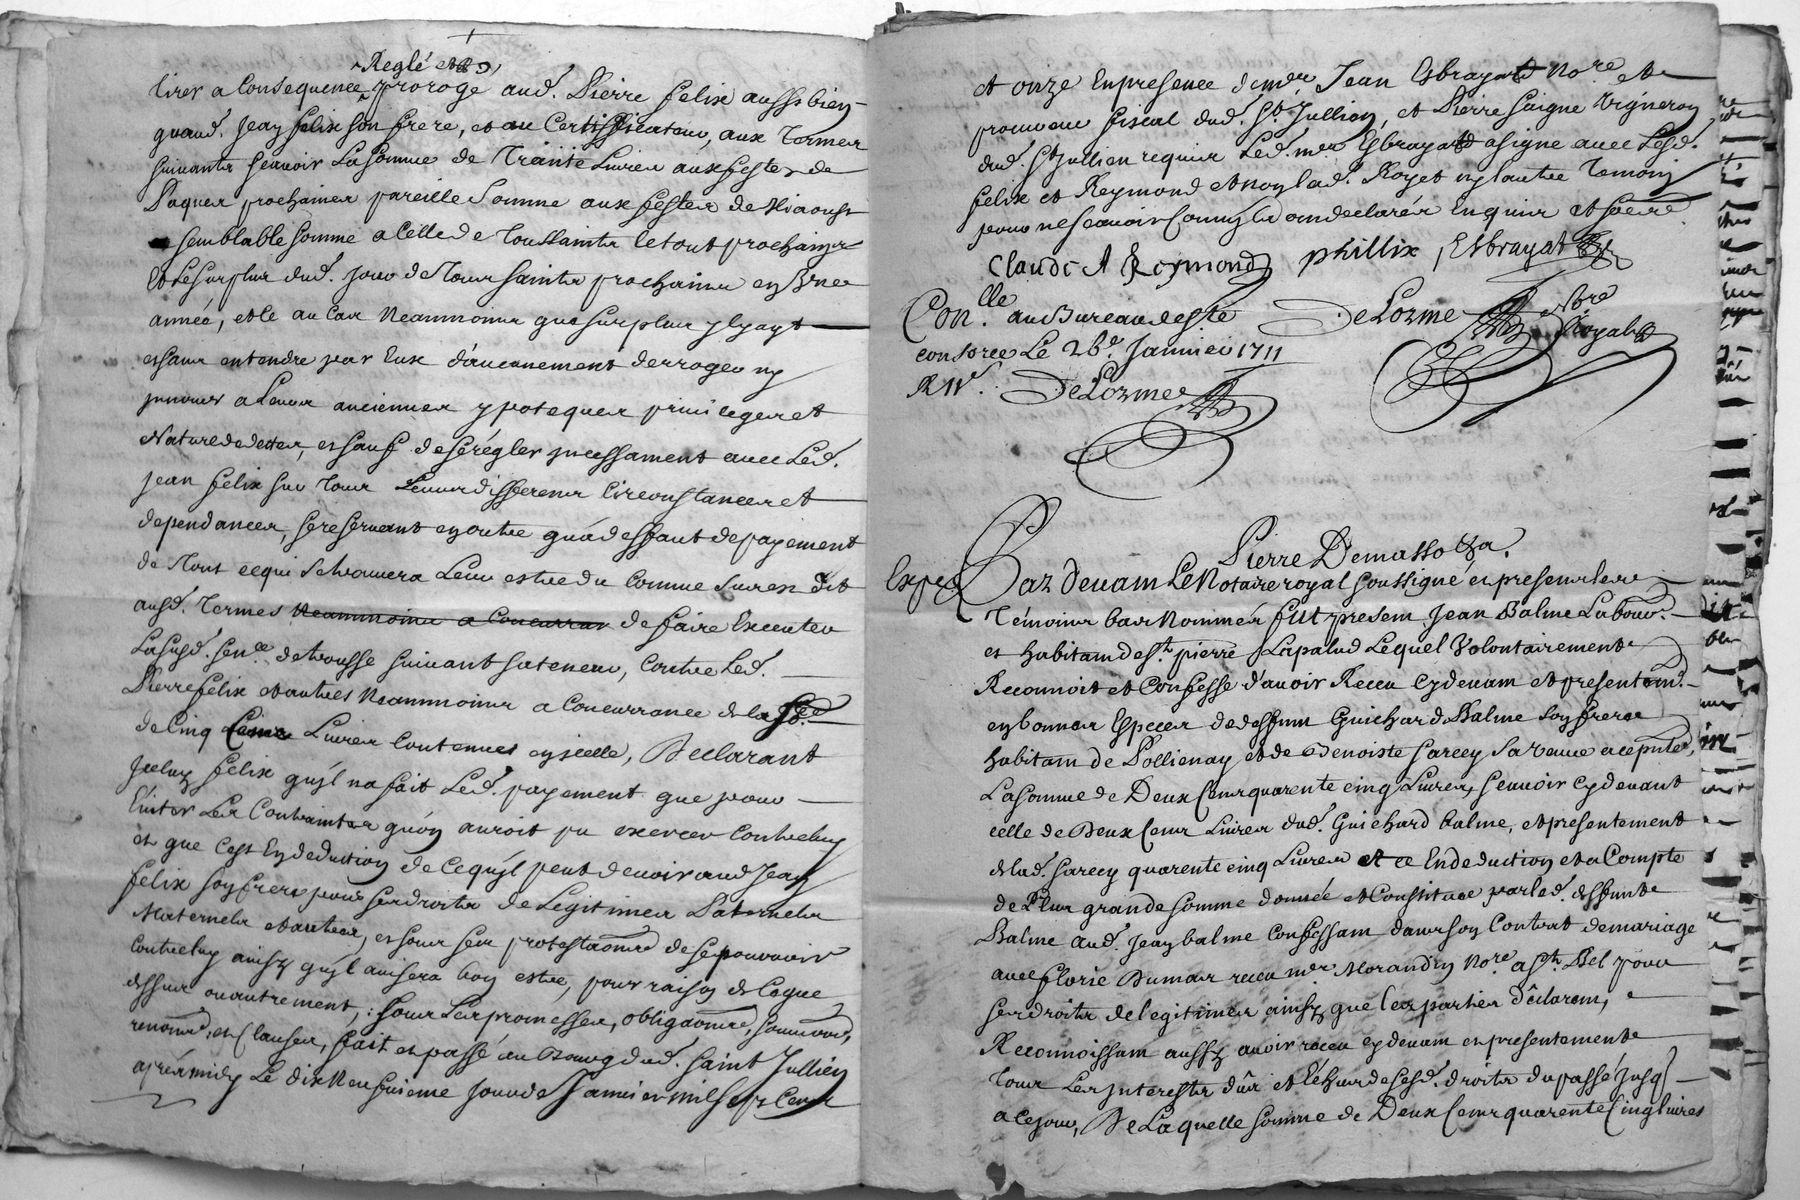 Reglé
tirer a Consequence proroge aud. Pierre felix aussi bien
quaud. Jean felix son frere, et au Certifficateur, aux Termes
suivants scavoir La somme de Trante Livres aux festes de
Paques prochaines pareille Somme aux festes de Miaoust
semblable somme a Celle de Toussaints le tout prochaines
Et Le surplus dud. jour de Tous saints prochaines en Une
année, et le au Cas Neanmoins que surplus y ayt
et sans entendre par Eux d'aucunement derroger ny
innover a Leurs anciennes ypoteques privileges et
Nature de dettes, et sauf de se régler incessament avec Led.
Jean felix sur Tous Leurs differens Circonstances et
dependances, se reservant en outre qu'a deffaut de payement
de Tout ce qui se trouvera Leur estre du Comme sus en dit
ausd. Termes Neanmoins a Concurrar de faire Executer
La susd. sence de trousse suivant sa teneur, Contre Led.
Pierre felix et autres Neanmoins a Concurrance de la
de Cinq Cens Livres Contenues en icelle, Declarant
Jceluy felix qu'il na fait Led. payement que pour
Eviter Les Contraintes qu'on auroit pu exercer Contreluy
et que C'est En deduction de Ce qu'il peut devoir aud Jean
felix son frere pour ses droits de Legitimes Paternels
Maternels et autres, et sous ses protestaons de se pourvoir
Contreluy ainsy qu'il avisera bon estre, pour raison de Ce que
dessus ou autrement, : sous Les promesses, obligaons, soumions,
renonons, et Clauses, fait et passé au Bourg dud. Saint Jullien
apres midy Le dix Neufvieme jour de Janvier mil Sept Cens
et onze En presence de mr. Jean Esbrayat Nore et
procureur fiscal dud. St. Jullien, et Pierre saigne Vigneron
dud. St Jullien requis Led. mr Esbrayat a signe avec Lesd.
felix et Reymond et non lad. Royet ny lautre Temoin
pour ne scavoir Comm'ils on declarés Enquis et
Claude A Reymond phillix Esbrayat
Conlle au Bureau de Ste
consorce Le 26e. Janvier 1711
R
DeLorme
DeLorme Nore
Royal
Pierre Demassoza.
Exped
Par devant Le Notaire royal soussigné et presens les
Témoins bas Nommés fut present Jean Balme Labour.
et habitant de St. pierre Lapalud Lequel Volontairement
Reconnoit et Confesse d'avoir Receu cy devant et presentemt.
en bonnes Especes de deffunt Guichard Balme son frere
habitant de Pollienay et de Benoiste sarcey sa veuve
La somme de Deux Cens quarente cinq Livres, scavoir cy devant
celle de Deux Cens Livres dud. Guichard balme, et presentement
de lad. sarcey quarente cinq Livres et ce En deduction et a Compte
de Plus grande somme donnée et Constituee par led. deffunt
Balme aud. Jean balme Confessant dans son Contrat de mariage
avec florie Dumas receu mr Morandin Nore a St. Bel pour
ses droits de legitimes ainsy que les parties déclarent,
Reconnoissant aussy avoir receu cy devant et presentement
Tous Les Interests dûs et Echus de sesd. droits du passé jusq
a Ce jour, De Laquelle somme de Deux Cens quarente Cinq livres